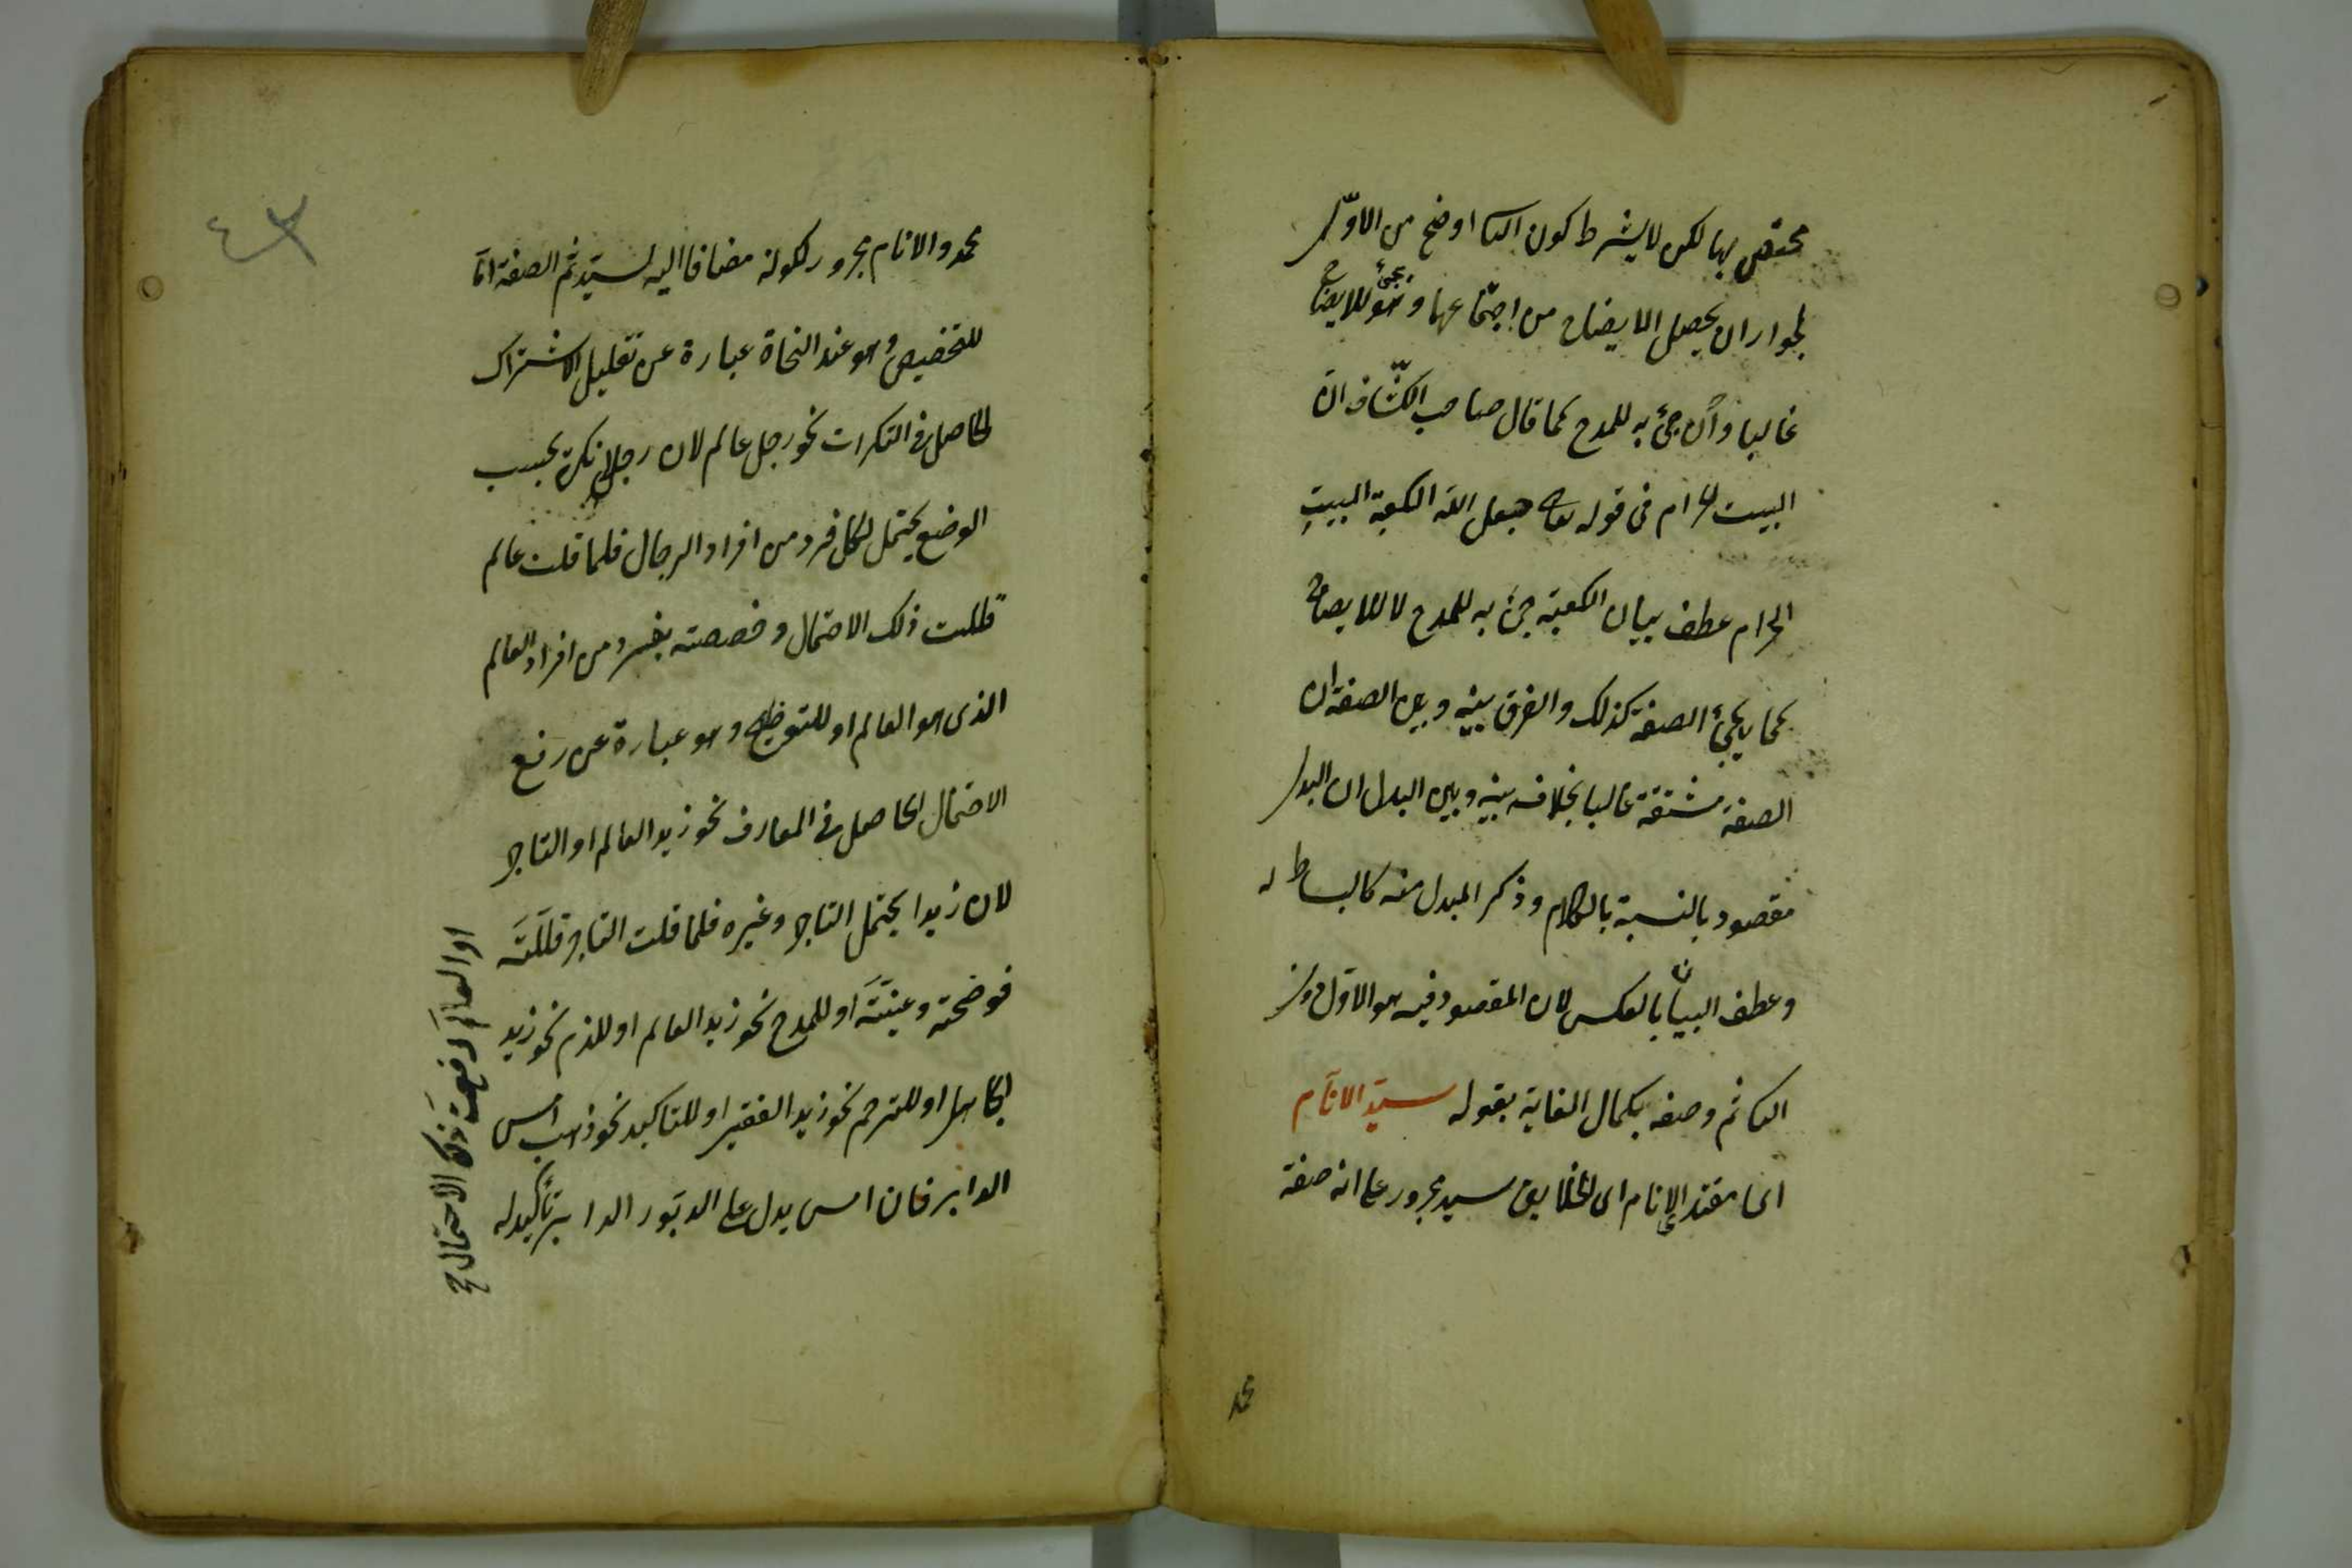 مختص بها لكن لا يشترط كون الثا اوضح من الاوّل
لجواز ان يحصل الايضاح من اجتماعهما وهو يجئ للايضاح
غالبا وان جئ به للمدح كما قال صاحب الكشّاف ان
البيت الحرام فى قوله تعا جعل الله الكعبة البيت
الحرام عطف بيان الكعبة جئ به للمدح لا للايضاح
كما يجئ الصفة كذلك والفرق بينه وبين الصفة ان
الصفة مشتقة غالبا بخلافه بينه وبين البدل ان البدل
مقصود بالنسبة بالكلام وذكر المبدل منه كالبساط له
وعطف البيان بالعكس لان المقصود فيه هو الاوّل دون
الثا ثم وصفه بكمال الغاية بقوله سيّد الانام
اى مقتدا الانام اى الخلايق سيد مجرور على انه صفة
محمد
٤٣
محمد والانام مجرور لكونه مضافا اليه لسيّد ثم الصفة امّا
للتخصيص وهو عند النحاة عبارة عن تقليل الاشتراك
الحاصل فى النكرات نحو رجل عالم لان رجلا نكرة بحسب
الوضع يحتمل لكل فرد من افراد الرجال فلما قلت عالم
قللت ذلك الاحتمال وخصصته بفرد من افراد العالم
الذى هو العالم او للتوضيح وهو عبارة عن رفع
الاحتمال الحاصل فى المعارف نحو زيد العالم او التاجر
لان زيدا يحتمل التاجر وغيره فلما قلت التاجر قللته
فوضحته وعينته او للمدح نحو زيد العالم او للذم نحو زيد
الجاهل او للترحم نحو زيد الفقير او للتاكيد نحو ذهب امس
الدابر فان امس يدل على الدبور الدابر تأكيد له
او العالم رفعت ذلك الاحتمال صح